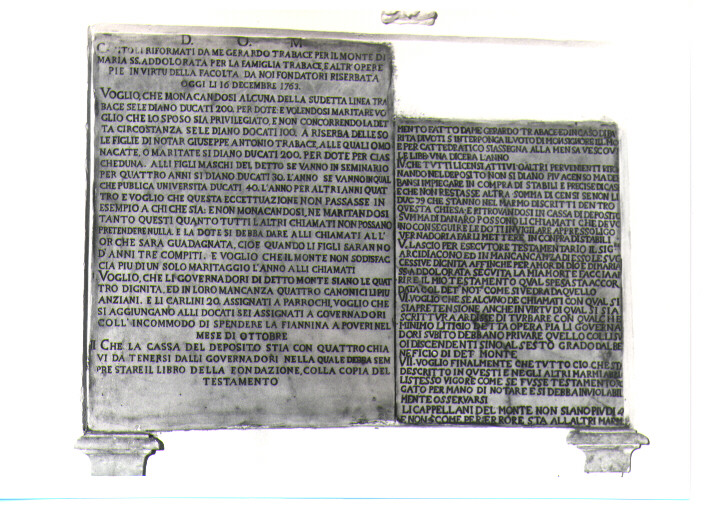 D. O. M.
CAPITOLI RIFORMATI DA ME GERARDO TRABACE PER IL MONTE DI
MARIA SS. ADDOLORATA PER LA FAMIGLIA TRABACE, E ALTR'OPERE
PIE IN VIRTU DELLA FACOLTA DA NOI FONDATORI RISERBATA
OGGI LI 16 DECEMBRE 1763.
VOGLIO, CHE MONACANDOSI ALCUNA DELLA SUDETTA LINEA TRA
BACE SE LE DIANO DUCATI 200. PER DOTE: E VOLENDOSI MARITARE VO
GLIO CHE LO SPOSO SIA PRIVILEGIATO, E NON CONCORRENDO LA DET
TA CIRCOSTANZA SE LE DIANO DOCATI 100. A RISERBA DELLE SO
LE FIGLIE DI NOTAR GIUSEPPE ANTONIO TRABACE, ALLE QUALI O MO
NACATE, O MARITATE SI DIANO DUCATI 200. PER DOTE PER CIAS
CHEDUNA. ALLI FIGLI MASCHI DEL DETTO SE VANNO IN SEMINARIO
PER QUATTRO ANNI SI DIANO DUCATI 30. L'ANNO SE VANNO IN QUAL
CHE PUBLICA UNIVERSITA DUCATI 40. L'ANNO PER ALTRI ANNI QUAT
TRO E VOGLIO CHE QUESTA ECCETTUAZIONE NON PASSASSE IN
ESEMPIO A CHI CHE SIA: E NON MONACANDOSI, NE MARITANDOSI
TANTO QUESTI QUANTO TUTTI L'ALTRI CHIAMATI NON POSSANO
PRETENDERE NULLA. E LA DOTE SI DEBBA DARE ALLI CHIAMATI ALL'
OR CHE SARA GUADAGNATA, CIOE QUANDO LI FIGLI SARANNO
D'ANNI TRE COMPITI. E VOGLIO CHE IL MONTE NON SODISFAC
CIA PIU DI UN SOLO MARITAGGIO L'ANNO ALLI CHIAMATI
VOGLIO, CHE LI GOVERNADORI DI DETTO MONTE SIANO LE QUAT
TRO DIGNITA, ED IN LORO MANCANZA QUATTRO CANONICI LI PIU
ANZIANI. E LI CARLINI 20. ASSIGNATI A PARROCHI, VOGLIO CHE
SI AGGIUNGANO ALLI DOCATI SEI ASSIGNATI A GOVERNADORI
COLL' INCOMMODO DI SPENDERE LA FIANNINA A POVERI NEL
MESE DI OTTOBRE
CHE LA CASSA DEL DEPOSITO STIA CON QUATTRO CHIA
VI DA TENERSI DALLI GOVERNADORI NELLA QUALE DEBBA SEM
PRE STARE IL LIBRO DELLA FONDAZIONE, COLLA COPIA DEL
TESTAMENTO
MENTO FATTO DA ME GERARDO TRABACE ED IN CASO DI PA
RITA DI VOTI S'INTERPONGA IL VOTO DI MONSIGNORE ILL.MO
E PER CATTEDRATICO SI ASSEGNA ALLA MENSA VESCOV
LE LIBRA UNA DI CERA L'ANNO
CHE TUTTI LI
NANDO NEL DEPOSITO NON SI DIANO
BANSI IMPIEGARE IN COMPRA DI STABILI E PRECISE DI CAS
E CHE NON RESTASSE ALTRA SOMMA DI CENSI SE NON LI
DUC. 79 CHE STANNO NEL MARMO DESCRITTI DENTRO
QUESTA CHIESA: E RITROVANDOSI IN CASSA DI DEPOSITO
SUMMA DI DANARO POSSONO LI CHIAMATI CHE DEVO
NO CONSEGUIRE LE DOTI INVIGILARE APPRESSO LI GO
VERNADORI A FARLI METTERE IN COMPRA DI STABILI
V. LASCIO PER ESECUTORE TESTAMENTARIO IL SIG.
ARCIDIACONO ED IN MANCANZA DI ESSO LE SUC
CESSIVE DIGNITA AFFINCHE PER AMOR DI DIO E DI MARIA
SS. ADDOLORATA SEGUITA LA MIA MORTE FACCIA A
RIRE IL MIO TESTAMENTO QUAL SPESA STA ACCOR
DATA COL DET. NOT. COME SI VEDRA QUELLO
VI. VOGLIO CHE SE ALCUNO DE CHIAMATI CON QUAL SI
SIA PRETENSIONE ANCHE IN VIRTU DI QUAL SI SIA
SCRITTURA ARDISSE DI TURBARE CON QUALCHE
MINIMO LITIGIO DETTA OPERA PIA LI GOVERNA
DORI SUBITO DEBBANO PRIVARE QUELLO COLLI SU
OI DISCENDENTI SINO AL SESTO GRADO DAL BE
NEFICIO DI DET. MONTE
VII. VOGLIO FINALMENTE CHE TUTTO CIO CHE STA
DESCRITTO IN QUESTI E NEGLI ALTRI MARMI ABBIA
L'ISTESSO VIGORE COME SE FUSSE TESTAMENTO RO
GATO PER MANO DI NOTARE E SI DEBBA INVIOLABIL
MENTE OSSERVARSI
LI CAPPELLANI DEL MONTE NON SIANO PIU DI 4
E NON 5 COME PER ERRORE STA ALL'ALTRI MARMI